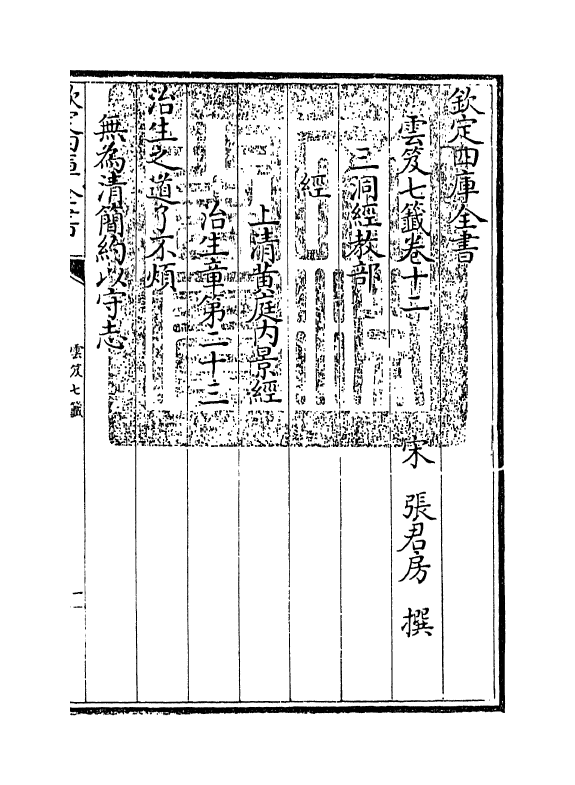 欽定四庫全書
雲笈七籤卷十二
宋 張君房 撰
三洞經教部
經
上清黃庭內景經
治生章第二十三
治生之道了不煩
無為清簡約以守志
欽定四庫全書
雲笈七籤
一